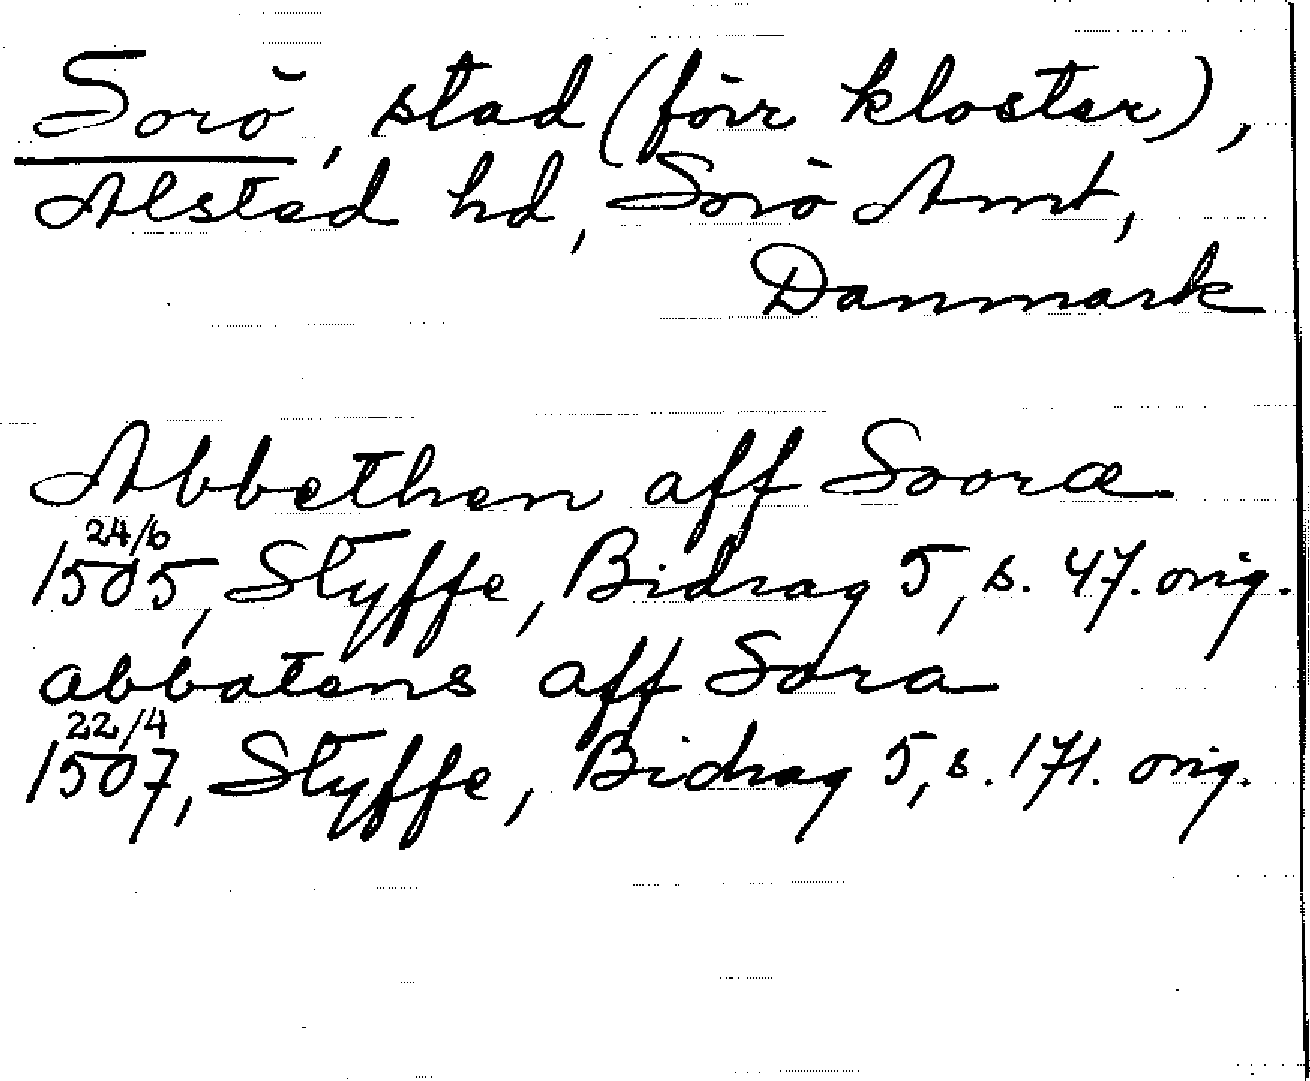 Sorö, stad (förr kloster),
Alsted hd, Sorö Amt,
Danmark
Abbethen aff Sooræ
1505 24/6, Styffe, Bidrag 5, s. 47. orig.
abbatens aff Sora
1507 22/4, Styffe, Bidrag 5, s. 171. orig.